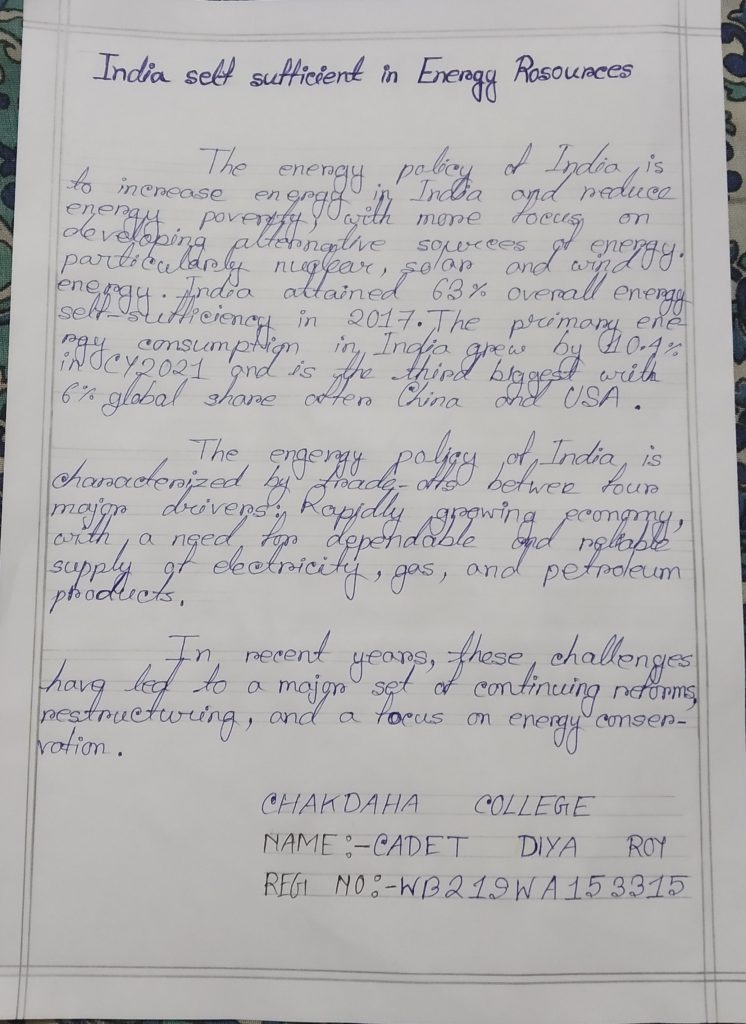 India self sufficient in Energy Rosources
The energy policy of India is
to increase energy in India and reduce
energy poverty, with more focus on
developing alternative sources of energy.
particularly nuclear, solar and wind
energy. India attained 63% overall energy
self-sufficiency in 2017. The primary ene
rgy consumption in India grew by 10.4%
in CY2021 and is the third biggest with
6% global share after China and USA.
The engergy policy of India is
characterized by trade-offs betwee four
major drivers: Rapidly growing economy,
with a need for dependable and reliable
supply of electricity, gas, and petroleum
products.
In recent years, these challenges
have led to a major set of continuing reforms,
restructuring, and a focus on energy conser-
vation.
CHAKDAHA COLLEGE
NAME:-CADET DIYA ROY
REGI NO:-WB219WA153315